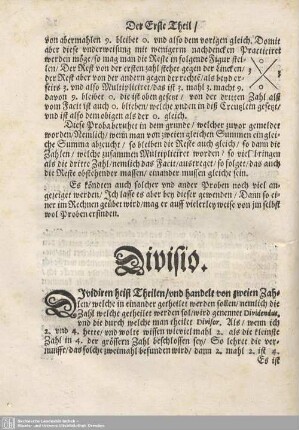 Der Erste Theil /
von abermahlen 9. bleibet 0. und also dem vorigen gleich. Domit
aber diese underweisung mit wenigerm nachdencken Practiciret
werden möge / so mag man die Reste in folgende Figur stel-
len / Der Rest von der ersten zahl stehet gegen der Lincken /
der Rest aber von der andern gegen der rechte / als beyd er-
stens 3. und also Multiplicire / das ist 3. mahl 3. macht 9.
davon 9. bleibet 0. die ist oben gesetzt / von der dritten Zahl als
vom Facit ist auch 0. blieben / welche unden in diß Creutzlein gesetzt /
und ist also dem obigen als der 0. gleich.
Diese Proba beruhet in dem grunde / welcher zuvor gemeldet
worden / Nemlich / wenn man von zweien gleichen Summen eingleis
che Summa abzeucht / so bleiben die Reste auch gleich / so dann die
Zahlen / welche zusammen Multipliciret worden / so viel bringen
als die dritte Zahl / nemlich das Facit / austreget / so folget / das auch
die Reste obstehender massen / einander müssen gleiche sein.
Es köndten auch solcher und ander Proben noch viel an-
gezeiget werden / Ich lasse es aber bey dieser gewonden / Dann so ei-
ner im Rechnen geübet wird / mag er auff vielerley weise von jm selbst
wol Proben erfinden.
Divisio.
Dividiren heist Theilen / und handelt von zweien Zah-
len / welche in einander getheilet werden sollen / nemlich die
Zahl welche getheilet werden sol / wird genennet Dividendus,
und die durch welche man theilet Divisor. Als / wenn ich
2. und 4. hette / und wolte wissen wieviel mahl 2. als die kleinste
Zahl in 4. der grössern Zahl beschlossen sey / So lehret die ver-
nunfft / das solche zweimahl befunden wird / dann 2. mahl 2. ist 4.
Es ist